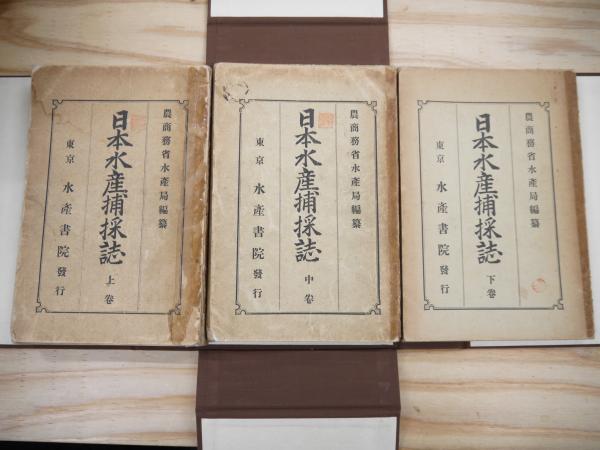 農商務省水產局編纂
日本水產捕採誌 上卷
東京 水產書院發行
農商務省水產局編纂
日本水產捕採誌 中卷
東京 水產書院發行
農商務省水產局編纂
日本水產捕採誌 下卷
東京 水產書院發行